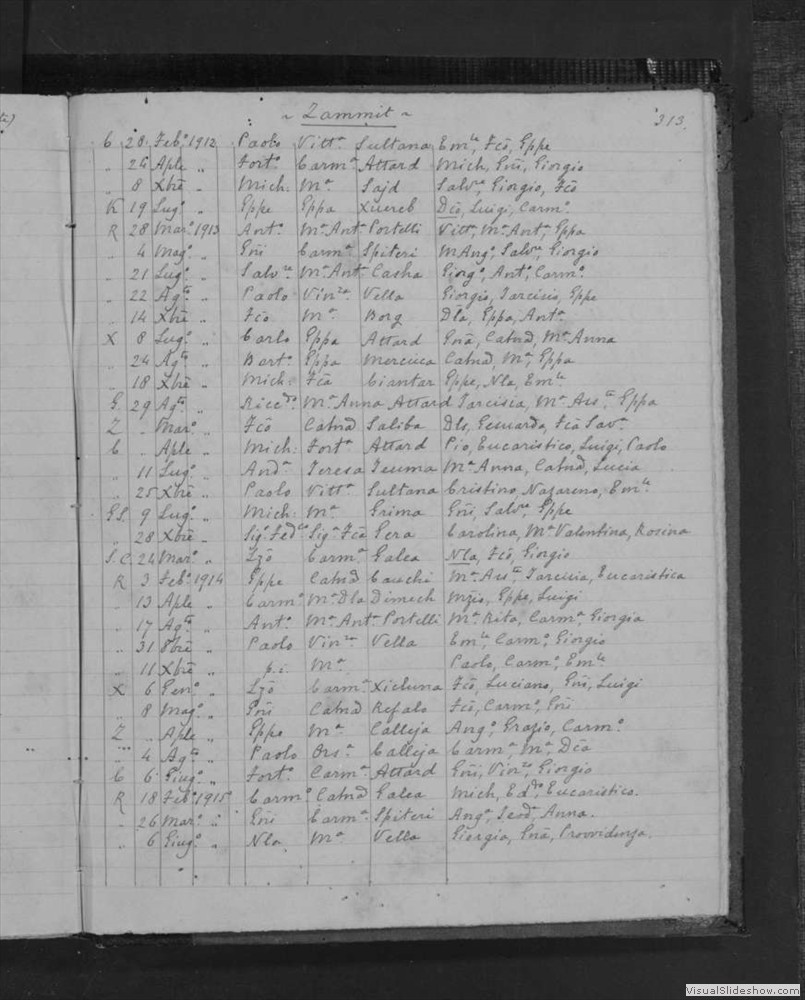 ~ Zammit ~
313.
C 28 Feb.º 1912 Paolo Vittª Sultana Emle, Fcō, Eppe
„ 24 Aple „ Fortº Carmª Attard Mich, Gñi, Giorgio
„ 8 Xbrē „ Mich: Mª Sajd Salvre, Giorgio, Fcō
K 19 Lugº „ Eppe Eppa Xuereb Dcō, Luigi, Carmº
R 28 Marº 1913 Antº Mª Antª Portelli Vittª, Mª Antª, Eppa
„ 4 Magº „ Gñi Carmª Spiteri M Angº, Salvre, Giorgio
„ 21 Lugº „ Salvre Mª Antª Casha Giorgº, Antº, Carmº
„ 22 Agto „ Paolo Vinza Vella Giorgio, Tarcisio, Eppe
„ 14 Xbrē „ Fcō Mª Borg Dla, Eppa, Antª
X 8 Lugº „ Carlo Eppa Attard Gñā, Catnā, Mª Anna
„ 24 Agto „ Bartº Eppa Mercieca Catnā, Mª, Eppa
„ 18 Xbrē „ Mich: Fcā Ciantar Eppe, Nla, Emle
G. 29 Agto „ Riccdo Mª Anna Attard Tarcisia, Mª Assta, Eppa
Z „ Marº „ Fcō Catnā Saliba Dls, Fcā Savª
C „ Aple „ Mich: Fortª Attard Pio, Eucaristico, Luigi, Paolo
„ 11 Lugº „ Andª Teresa Teuma Mª Anna, Catnā, Lucia
„ 25 Xbrē „ Paolo Vittª Sultana Cristino, Nazareno, Emle
G.S. 9 Lugº „ Mich: Mª Grima Gñi, Salvre, Eppe
„ 28 Xbrē „ Sigr Fedco Sigª Fcā Pera Carolina, Mª Valentina, Rosina
S.C. 24 Marº „ Lzō Carmª Galea Nla, Fcō, Giorgio
R 3 Febº 1914 Eppe Catnā Cauchi Mª Assta, Tarcisia, Eucaristica
„ 13 Aple „ Carmº Mª Dla Dimech Mzio, Eppe, Luigi
„ 17 Agto „ Antº Mª Antª Portelli Mª Rita, Carmª, Giorgia
„ 31 8brē „ Paolo Vinza Vella Emle, Carmº, Giorgio
„ 11 Xbrē „ p.i. Mª Paolo, Carmº, Emle
X 6 Genº „ Lzō Carmª Xicluna Fcō, Luciano, Gñi, Luigi
„ 8 Magº „ Gñi Catnā Refalo Fcō, Carmº, Gñi
Z „ Aple „ Eppe Mª Calleja Angº, Grazio, Carmº
„ 4 Agto „ Paolo Orsª Calleja Carmª, Mª, Dca
C 6 Giugº „ Fortº Carmª Attard Gñi, Vinzo, Giorgio
R 18 Febº 1915 Carmº Catnā Galea Mich, Eddo, Eucaristico.
„ 26 Marº „ Gñi Carmª Spiteri Angª, Teodª, Anna.
„ 6 Giugº „ Nla Mª Vella Giorgia, Gñā, Provvidenza.
VisualSlideshow.com